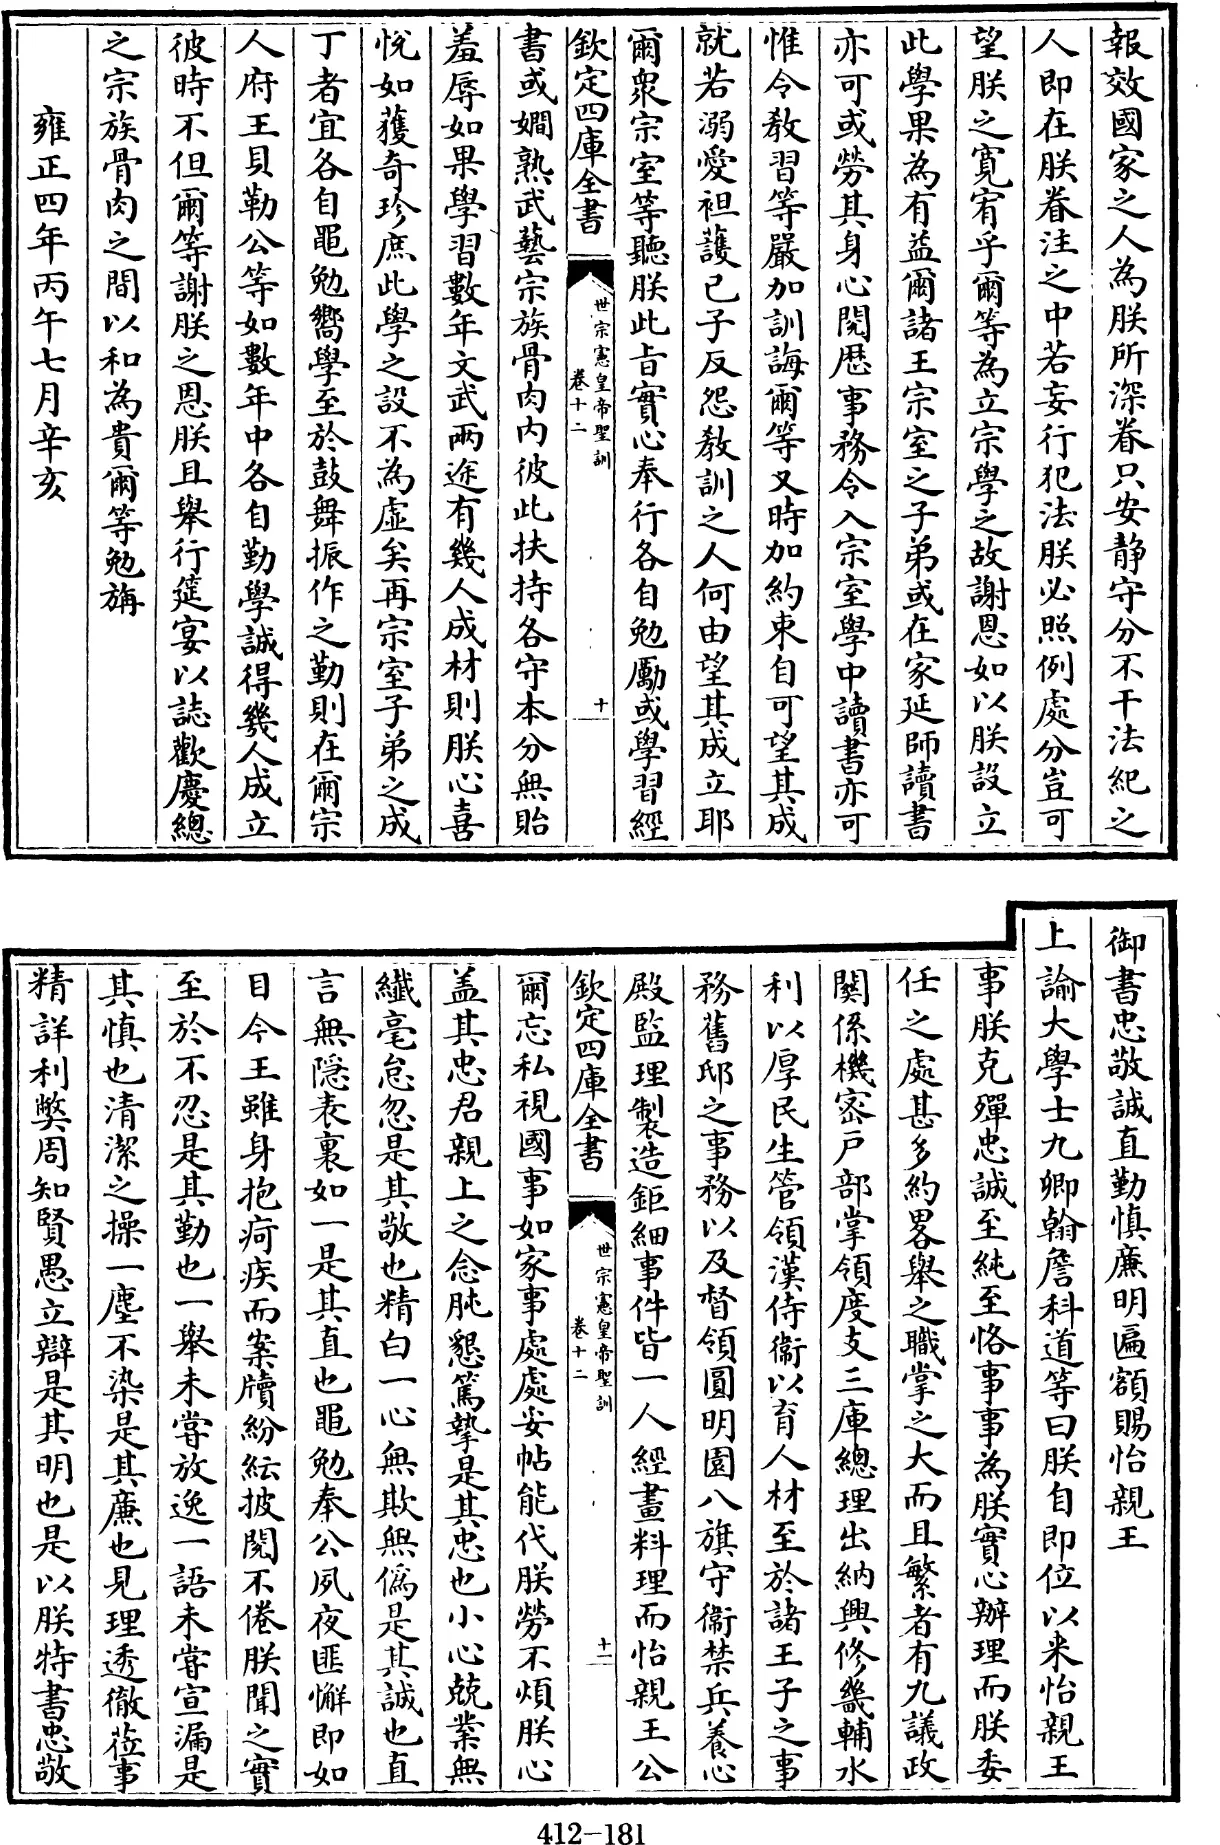 報效國家之人為朕所深眷只安靜守分不干法紀之
人即在朕眷注之中若妄行犯法朕必照例處分豈可
望朕之寛宥乎爾等為立宗學之故謝恩如以朕設立
此學果為有益爾諸王宗室之子弟或在家延師讀書
亦可或勞其身心閱歴事務令入宗室學中讀書亦可
惟令教習等嚴加訓誨爾等又時加約束自可望其成
就若溺愛袒護已子反怨教訓之人何由望其成立耶
爾衆宗室等聽朕此旨實心奉行各自勉勵或學習經
欽定四庫全書
世宗憲皇帝聖訓
卷十二
十
書或嫺熟武藝宗族骨肉内彼此扶持各守本分無貽
羞辱如果學習數年文武兩途有幾人成材則朕心喜
悅如獲奇珍庶此學之設不為虛矣再宗室子弟之成
丁者宜各自黽勉嚮學至於鼓舞振作之勤則在爾宗
人府王貝勒公等如數年中各自勤學誠得幾人成立
彼時不但爾等謝朕之恩朕且舉行筵宴以誌歡慶總
之宗族骨肉之間以和為貴爾等勉旃
雍正四年丙午七月辛亥
御書忠敬誠直勤慎廉明匾額賜怡親王
上諭大學士九卿翰詹科道等曰朕自即位以來怡親王
事朕克殫忠誠至純至恪事事為朕實心辦理而朕委
任之處甚多約畧舉之職掌之大而且繁者有九議政
關係機密户部掌領度支三庫總理出納興修畿輔水
利以厚民生管領漢侍衞以育人材至於諸王子之事
務舊邸之事務以及督領圓明園八旗守衞禁兵養心
殿監理製造鉅細事件皆一人經畫料理而怡親王公
欽定四庫全書
世宗憲皇帝聖訓
卷十二
十一
爾忘私視國事如家事處處妥帖能代朕勞不煩朕心
盖其忠君親上之念肫懇篤摯是其忠也小心兢業無
纖毫怠忽是其敬也精白一心無欺無僞是其誠也直
言無隱表裏如一是其直也黽勉奉公夙夜匪懈即如
目今王雖身抱疴疾而案牘紛紜披閱不倦朕聞之實
至於不忍是其勤也一舉未嘗放逸一語未嘗宣漏是
其慎也清潔之操一塵不染是其廉也見理透徹莅事
精詳利弊周知賢愚立辯是其明也是以朕特書忠敬
412-181